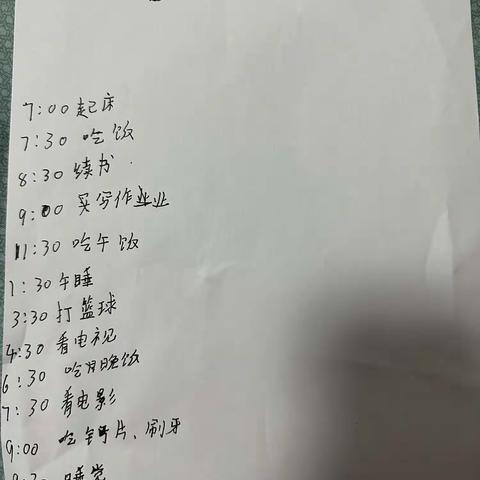 7:00 起床
7:30 吃饭
8:30 续书.
9:00 买写作业
11:30 吃午饭
1:30 午睡
3:30 打篮球
4:30 看电视
6:30 吃晚饭
7:30 看电影
9:00 吃钙片、刷牙
9:30 睡觉